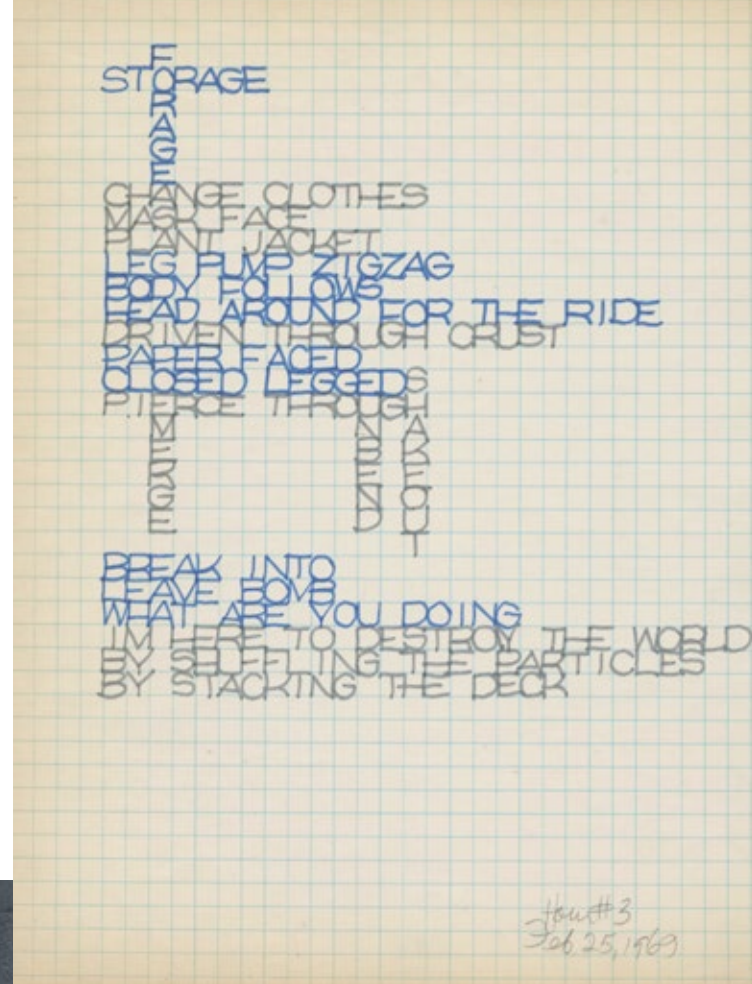 FORAGE
STORAGE
CHANGE CLOTHES
MASK FACE
PLANT JACKET
LEG PUMP ZIGZAG
BODY FOLLOWS
HEAD AROUND FOR THE RIDE
DRIVEN THROUGH CRUST
PAPER FACED
CLOSED LEGGED
PIERCE THROUGH
EMERGE
UNBEND
SHAKEOUT
BREAK INTO
LEAVE BOMB
WHAT ARE YOU DOING
IM HERE TO DESTROY THE WORLD
BY SHUFFLING THE PARTICLES
BY STACKING THE DECK
Hour #3
Feb. 25, 1969